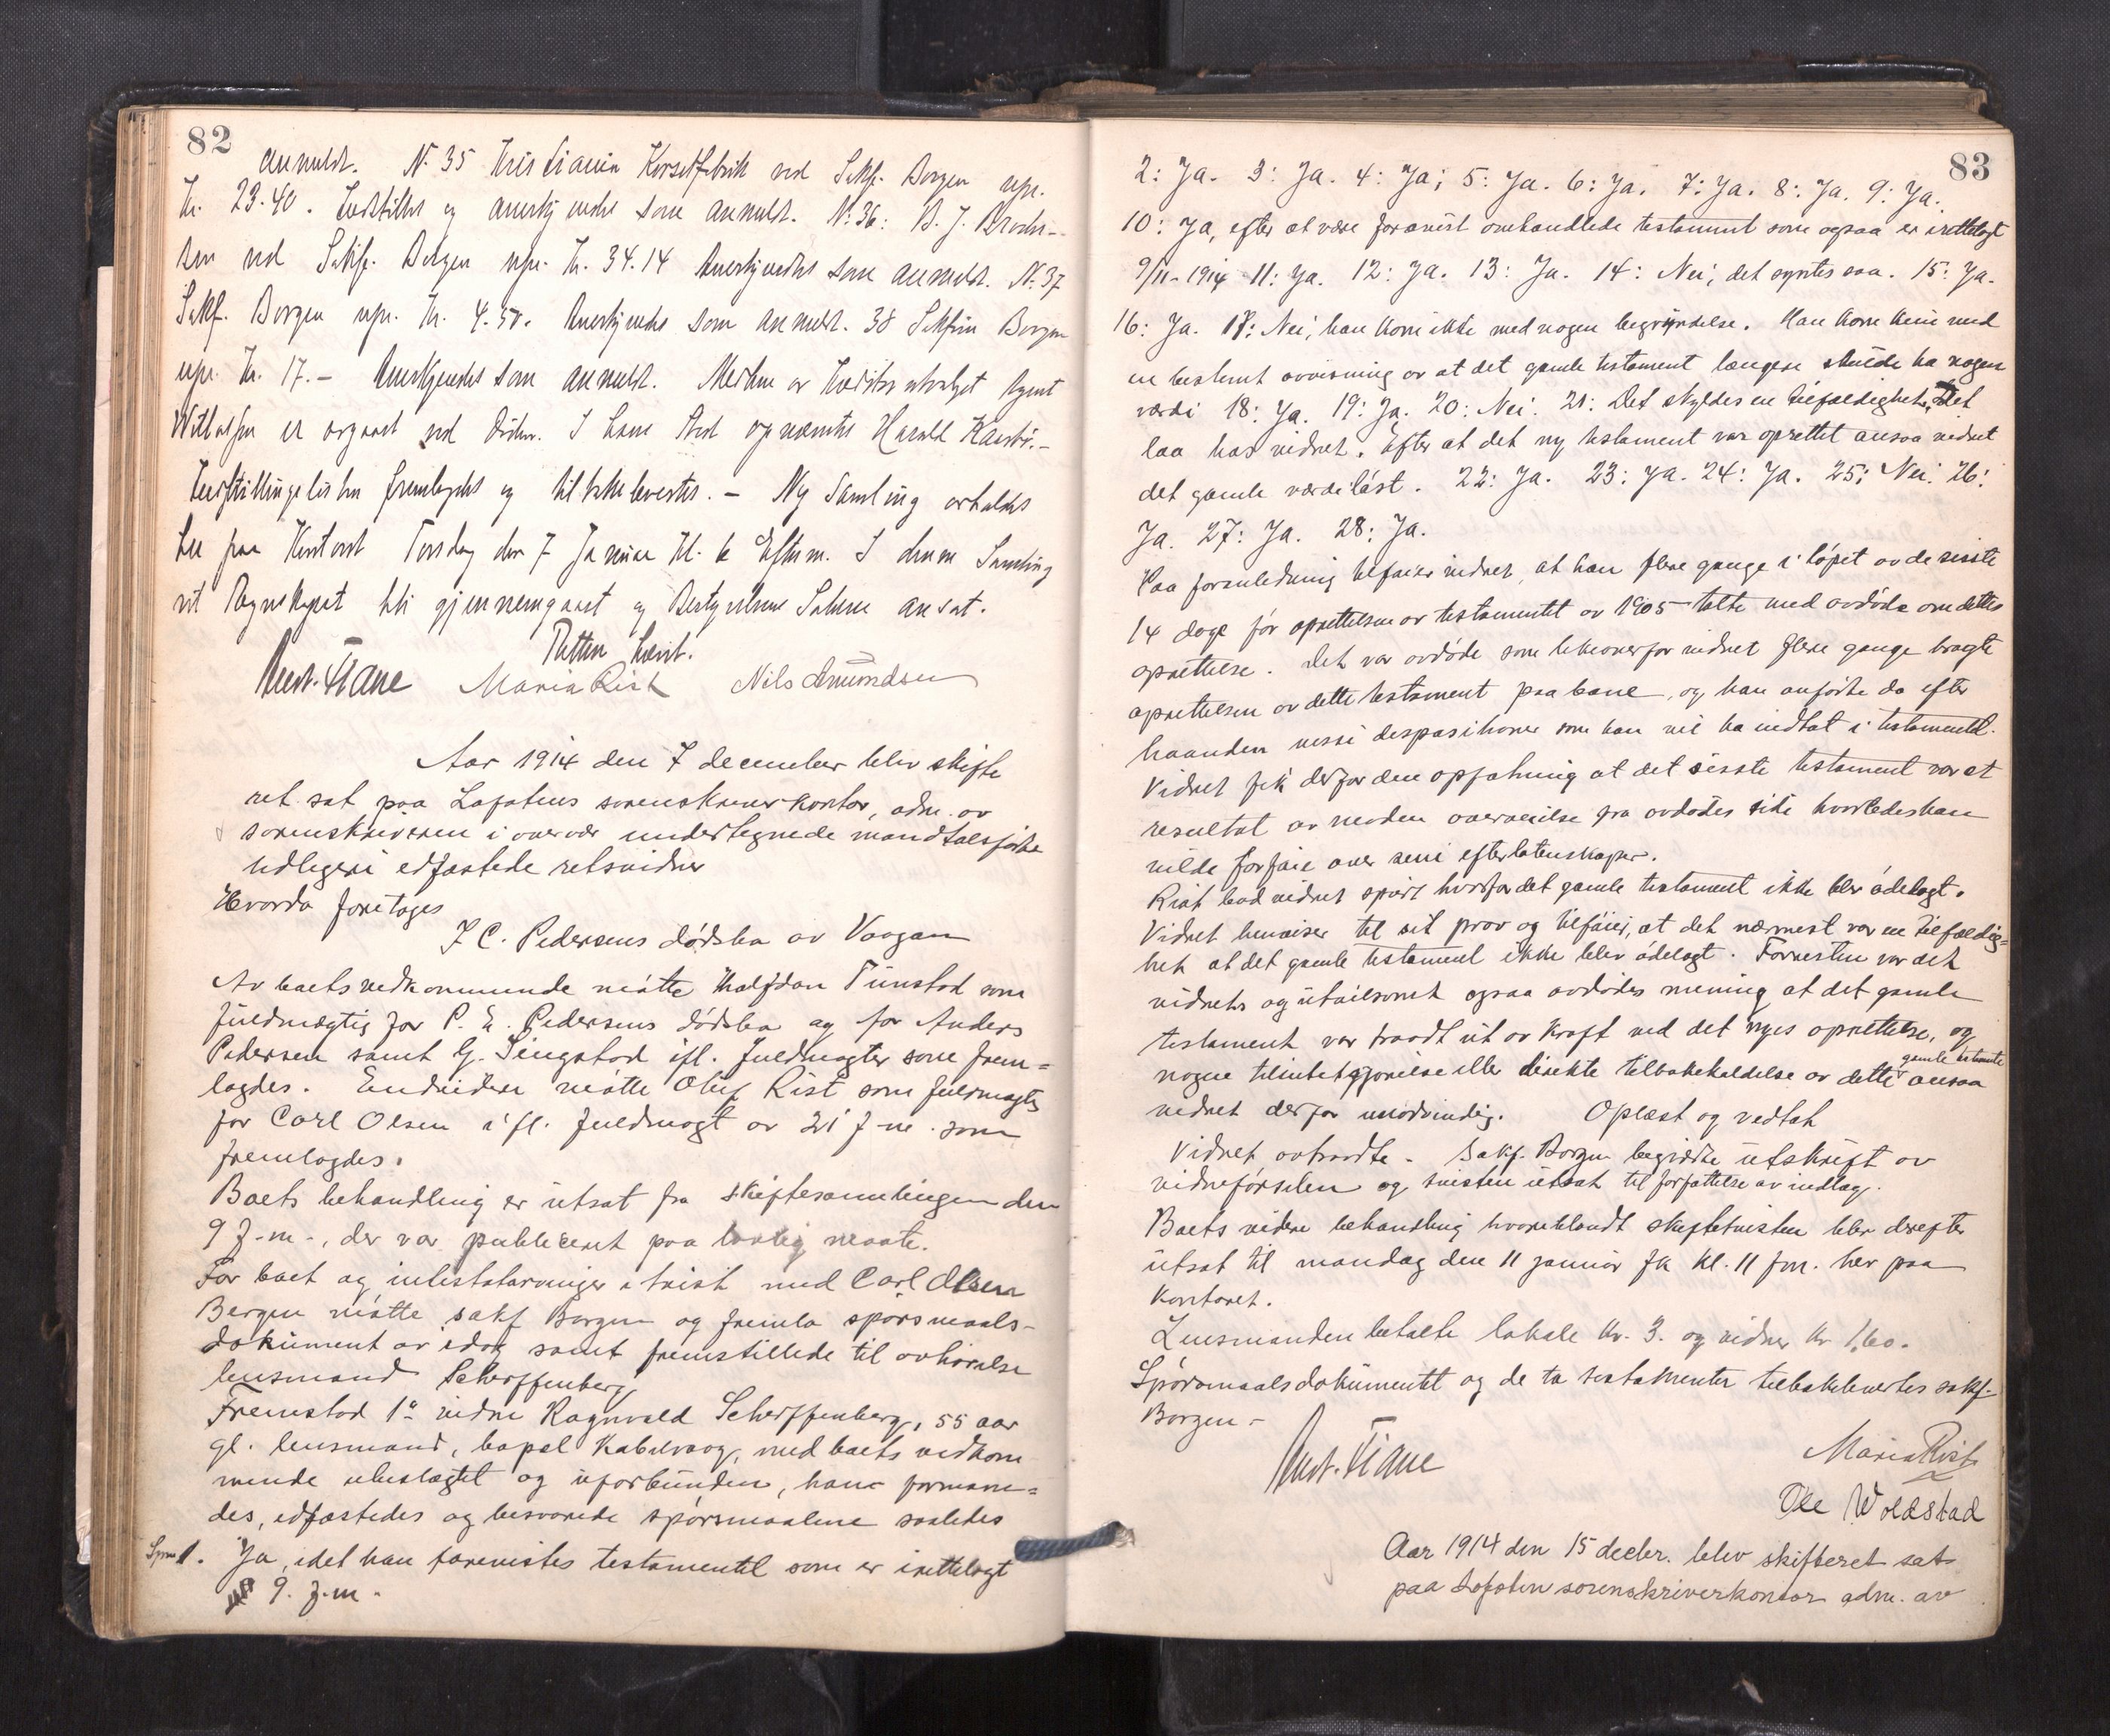 82
anmeldt. N. 35 Kristiania Korsetfabrik ved Sakf. Borgen upr.
Kr. 23.40. Indstilles og anerkjendes som anmeldt. N. 36: B. J.
ved Sakf. Borgen upr. Kr. 34.14 Anerkjendtes som anmeldt. N. 37
Sakf. Borgen upr. Kr. 4.50. Anerkjendes som anmeldt. 38 Sakfører Borgen
upr. Kr. 17.- Anerkjendes som anmeldt. Medlem av Kreditorutvalget Agent
er avgaaet ved Døden. I hans Sted opnævntes Harald
fremlagdes og tilbakelevertes. - Ny Samling avholdes
her paa Kontoret Torsdag den 7 Januar Kl. 6 Efterm. I denne Samling
vil Regnskapet bli gjennemgaaet og Bestyrelsens Salær ansat.
Retten hævet.
Maria Rist Nils Amundsen
Aar 1914 den 7 december blev skifte
ret sat paa Lofotens sorenskriverkontor, adm. av
sorenskriveren i overvær undertegnede mandtalsførte
tidligere edfæstede retsvidner
Hvorda foretoges
J C. Pedersens dødsbo av Vaagan
Av boets vedkommende møtte Halfdan Tunstad som
fuldmægtig for P. E. Pedersens dødsbo og for Anders
Pedersen samt G. Lingstad ifl. fuldmagter som frem=
lagdes. Endvidere møtte Oluf Rist som fuldmægtig
for Carl Olsen ifl. fuldmagt av 21 f-m. som
fremlagdes.
Boets behandling er utsat fra skiftesamlingen den
9 f-m-, der var publiceret paa lovlig maate.
For boet og intestatarvinger i tvist med Carl Olsen
Bergen møtte sakf Borgen og fremla spørsmaals-
dokument av idag samt fremstillede til avhørelse
lensmand Scherffenberg
Fremstod 1ª vidne Ragnvald Scherffenberg, 55 aar
gl. lensmand, bopæl Kabelvaag, med boets vedkom
mende ubeslægtet og uforbunden, hans formane=
des, edfæstedes og besvarede spørsmaalene saaledes
Spm 1. Ja, idet han forevistes testamentet som er irettelagt
9. f.m.
83
2: Ja. 3: Ja. 4: Ja; 5: Ja. 6: Ja. 7: Ja. 8: Ja. 9: Ja.
10: Ja, efter at være forevist omhandlede testament som ogsaa er irettelagt
9/11-1914 11: Ja. 12: Ja. 13: Ja. 14: Nei, det syntes saa. 15: Ja.
16: Ja. 17: Nei, han kom ikke med nogen begrundelse. Han kom kun med
en bestemt avvisning av at det gamle testament længere skulde ha nogen
værdi 18: Ja. 19: Ja. 20: Nei. 21: Det skyldes en tilfældighet, det
laa hos vidnet. Efter at det ny testament var oprettet ansaa vidnet
det gamle værdiløst. 22: Ja. 23: Ja. 24: Ja. 25: Nei. 26:
Ja. 27: Ja. 28: Ja.
Paa foranledning tilføier vidnet, at han flere gange i løpet av de sisste
14 dage før oprettelsen av testamentet av 1905 talte med avdøde om dettes
oprettelse. Det var avdøde som likeoverfor vidnet flere gange bragte
oprettelsen av dette testament paa bane, og han anførte da efter
haanden visse desposisjoner som han vil ha indtat i testamentet.
Vidnet fik derfor den opfatning at det sisste testament var et
resultat av moden overveielse fra avdødes side hvorledes han
vilde forføie over sine efterlatenskaper.
Rist bad vidnet spurt hvorfor det gamle testament ikke blev ødelagt.
Vidnet henviser til sit prov og tilføier, at det nærmest var en tilfældig=
het at det gamle testament ikke blev ødelagt. Forresten var det
vidnets og utvilsomt ogsaa avdødes mening at det gamle
testament var traadt ut av kraft ved det nyes oprettelse, og
nogen tilintetgjørelse eller direkte tilbakekaldelse av dette gamle testamente ansaa
vidnet derfor unødvendig. Oplæst og vedtat
Vidnet avtraadte. Sakf. Borgen begjærte utskrift av
vidneførselen og tvisten utsat til forfattelse av indlæg.
Boets videre behandling hvoriblandt skiftetvisten blev derefter
utsat til mandag den 11 januar fk kl. 11 fm. her paa
kontoret.
Lensmanden betalte lokale kr. 3. og vidner kr 1,60.
Spørsmaalsdokumentet og de to testamenter tilbakelevertes sakf.
Borgen -
Maria Rist
Ole Woldstad
Aar 1914 den 15 decbr. blev skifteret sat
paa Lofoten sorenskriverkontor adm. av